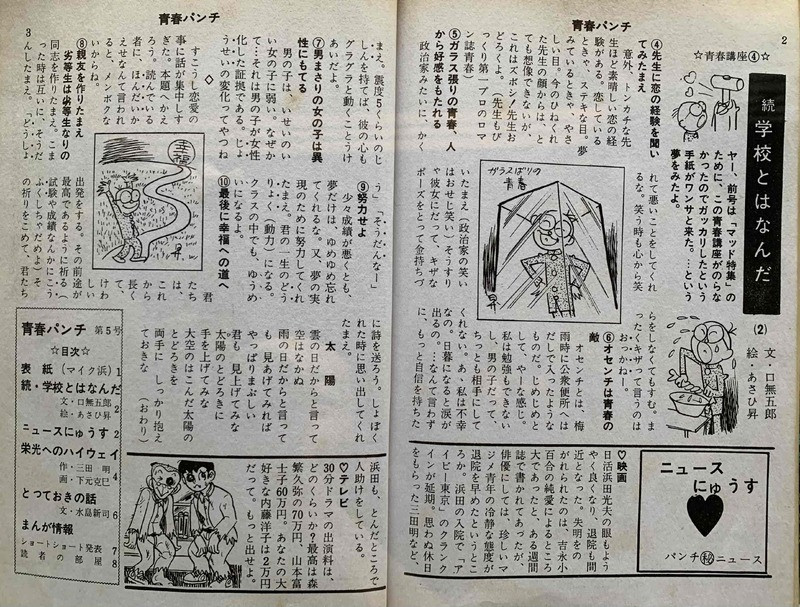 青春パンチ
2
☆青春講座④☆
続 学校とはなんだ
(2)
文・口無五郎
絵・あさひ昇
ヤー、前号は「マッド特集」の
ために、この青春講座がのらな
かったのでガッカリしたという
手紙がワンサと来た。…という
夢をみたよ。
④先生に恋の経験を聞い
てみたまえ
意外、トンチカな先
生ほど素晴しい恋の経
験がある。恋している
ときゃ、ステキな目。夢
みているときゃ、やさ
しい目。今のひねくれ
た先生の顔からは、と
ても想像できないが、
これはズボシ!先生お
どろくよ。(先生もび
っくり第一プロのロマ
ン誌青春)
⑤ガラス張りの青春、人
から好意をもたれる
政治家みたいに、かく
れて悪いことをしてくれ
るな。笑う時も心から笑
いたまえ(政治家の笑い
はおせじ笑い)そうすり
ゃ彼女にだって、キザな
ポーズをとって金持ちづ
らをしなくてもすむ。ま
ったくキザって言うのは
おっかねー。
ガラスばりの
青春
昇
⑥オセンチは青春の
敵
オセンチとは、梅
雨時に公衆便所へは
だしで入ったような
ものだ。じめじめと
して、やーな感じ。
私は勉強もできない
し、男の子だって、
ちっとも相手にして
くれない。あ、私は不幸
なの。日暮になると涙が
出るの。…なんて言わず
に、もっと自信を持ちた
ニュース
にゅうす
パンチ㊙ニュース
♡映画
日活浜田光夫の眼もよう
やく良くなり、退院も間
近となった。失明をの
がれられたのは、吉永小
百合の純愛によるところ
大であったと、ある週間
誌で書かれてあったが、
俳優にしては、珍しいマ
ジメ青年の冷静な態度が
退院を早めたというとこ
ろか。浜田の入院で「ア
イビー東京」のクランク
インが延期。思わぬ休日
をもらった三田明など、
青春パンチ
3
まえ。震度5くらいのじ
しんを持てば、彼の心も
グラグラと動くことうけ
あいだ。
⑦男まさりの女の子は異
性にもてる
男の子は、いせいのい
い女の子に弱い。なぜか
って…それは男の子が女性
化した証拠である。じょ
うせいの変化ってやつね
◇
すこうし恋愛の
事に話が集中しす
ぎた。本題へかえ
ろう。読んでいる
者に、ほんだいか
えせなんて言われ
かねない。メンボクな
いからね。
⑧親友を作りたまえ
劣等生は劣等生なりの
同志を作りたまえ。こま
った時は互いに、そうだ
んしたまえ。「どうしょ
う」「そうだんなー」
⑨努力せよ
少々成績が悪くとも、
夢だけは、ゆめゆめ忘れ
てくれるな。又、夢の実
現のために努力してくれ
たまえ。君の一生のどう
りょく(動力)になる。
クラスの中でも、ゆうめ
いになるよ。
⑩最後に幸福への道へ
君
たち
は、
これ
から
長く
けわ
しい
出発をする。その前途が
最高であるように祈る(
試験や成績なんかにこう
ふくしちゃだめよ)そ
の祈りをこめて、君たち
幸福
昇
に詩を送ろう。しょぼく
れた時に思い出してくれ
たまえ。
太陽
雲の日だからと言って
空はなかぬ
雨の日だからと言って
も 見あげてみれば
やっぱりまぶしい
君も 見上げてみな
太陽のとどろきに
手を上げてみな
大空のはこんだ太陽の
とどろきを
両手に しっかり抱え
ておきな (おわり)
浜田も、とんだところで
人助けをしている。
♡テレビ
30分ドラマの出演料は、
どのくらいか?最高は森
繁久弥の70万円、山本富
士子60万円。あなたの大
好きな内藤洋子は2万円
だって。もっと出せよ。
青春パンチ 第5号
☆目次☆
表紙(マイク浜) 1
続・学校とはなんだ
文・口無五郎
絵・あさひ昇 2
ニュースにゅうす 2
栄光へのハイウェイ
作・三田 明
画・下元克巳 4
とっておきの話
文・水島新司 6
まんが情報
ショートショート発表 7
読者の部屋 8